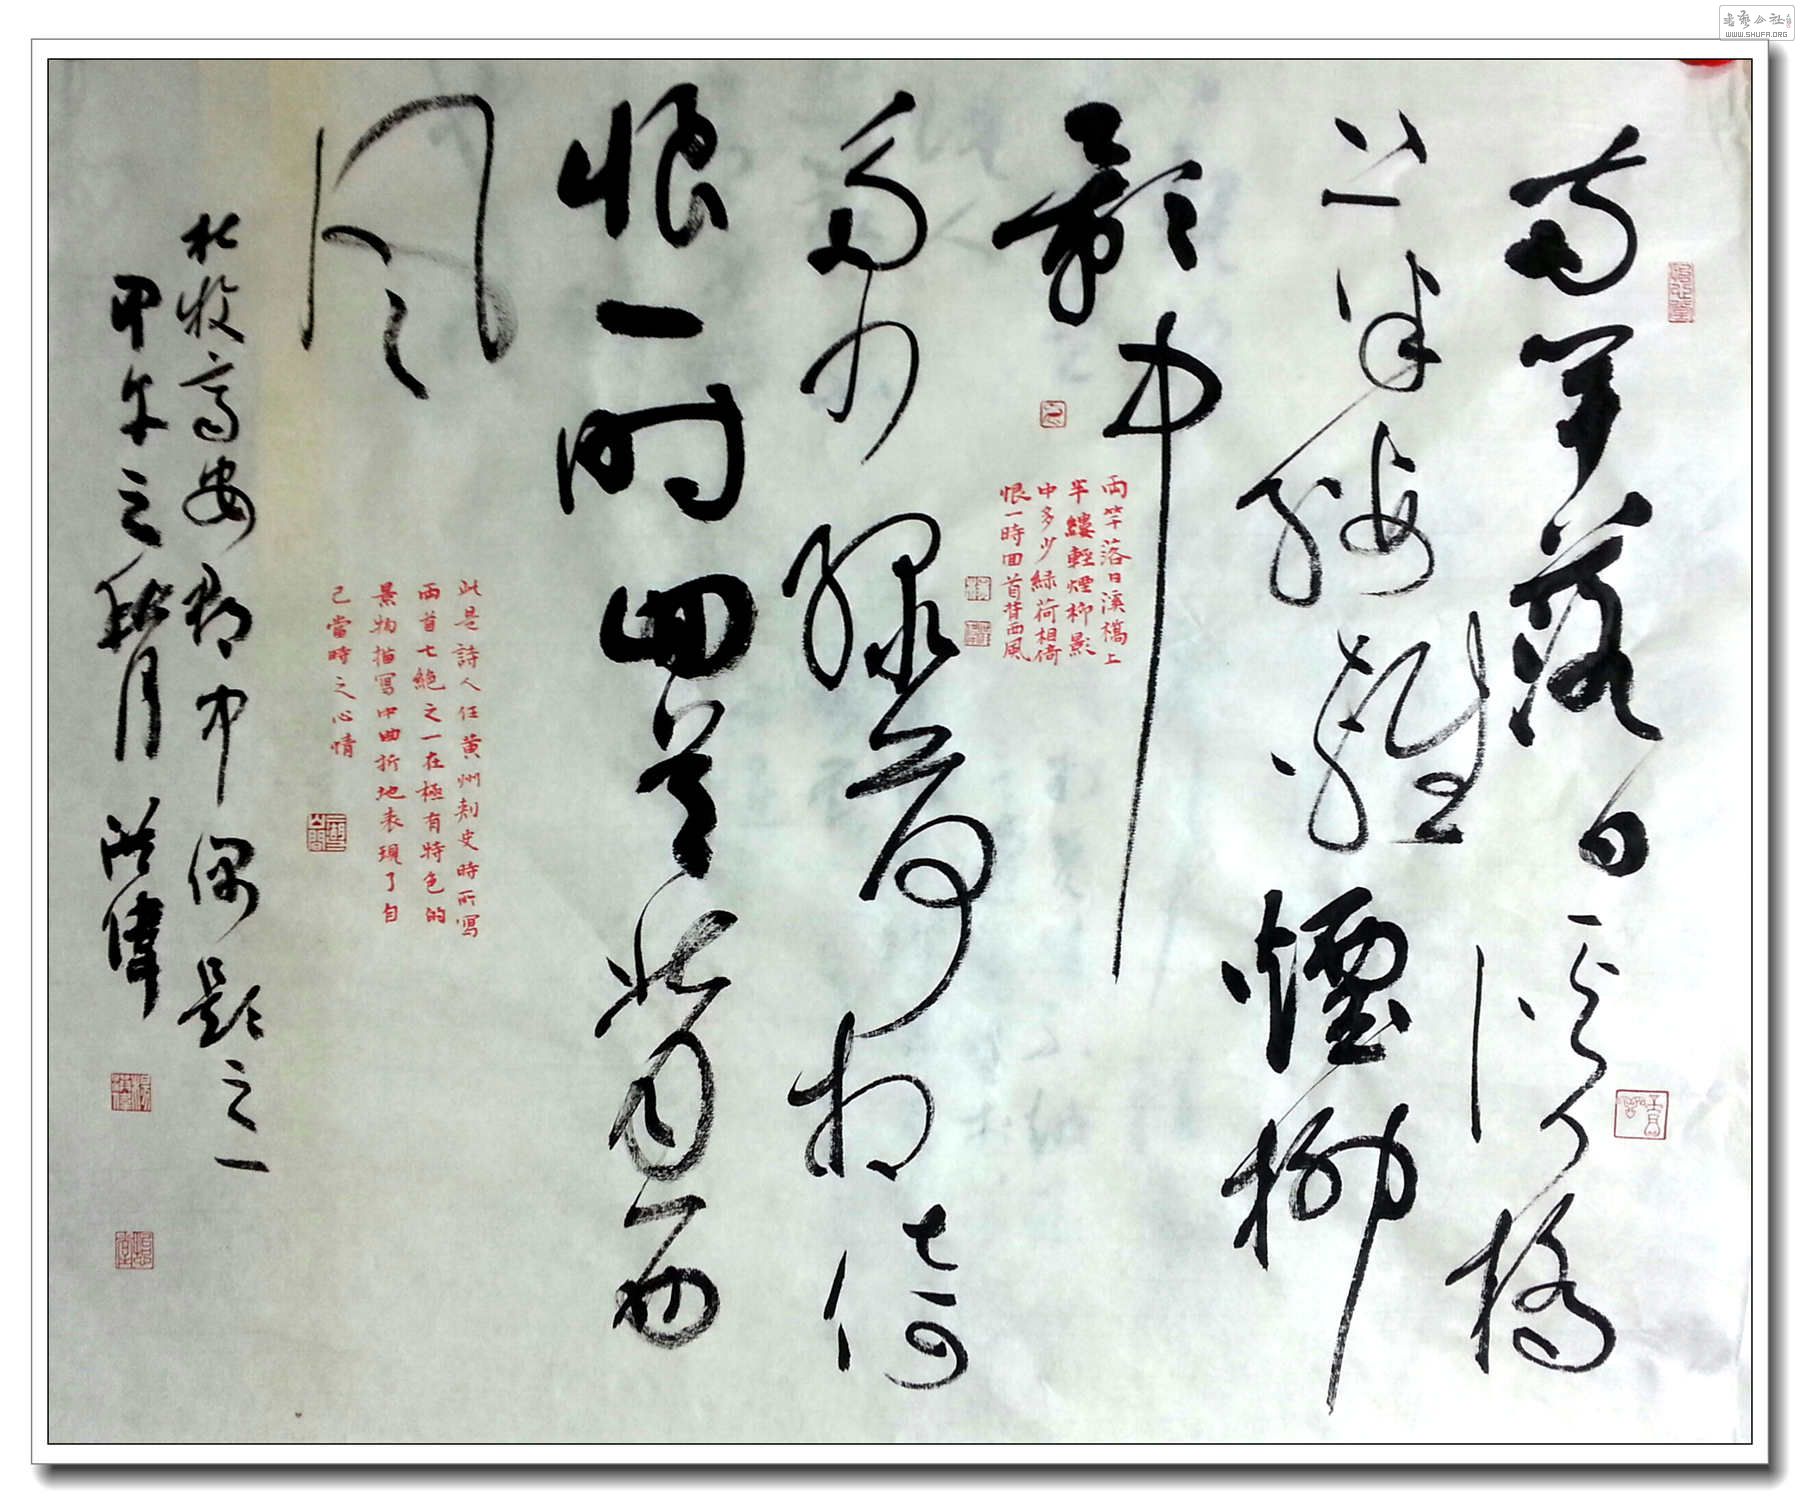 兩竿落日溪橋
上半縷輕煙柳
影中
兩竿落日溪橋上
半縷輕煙柳影
中多少綠荷相倚
恨一時回首背西風
多少綠荷相倚
恨一時回首背西
風
此是詩人任黄州刺史時所寫
两首七絶之一在極有特色的
景物描寫中曲折地表現了自
己當時之心情
杜牧齊安郡中偶題之一
甲午之秋月洪偉
書藝公社
WWW.SHUFA.ORG